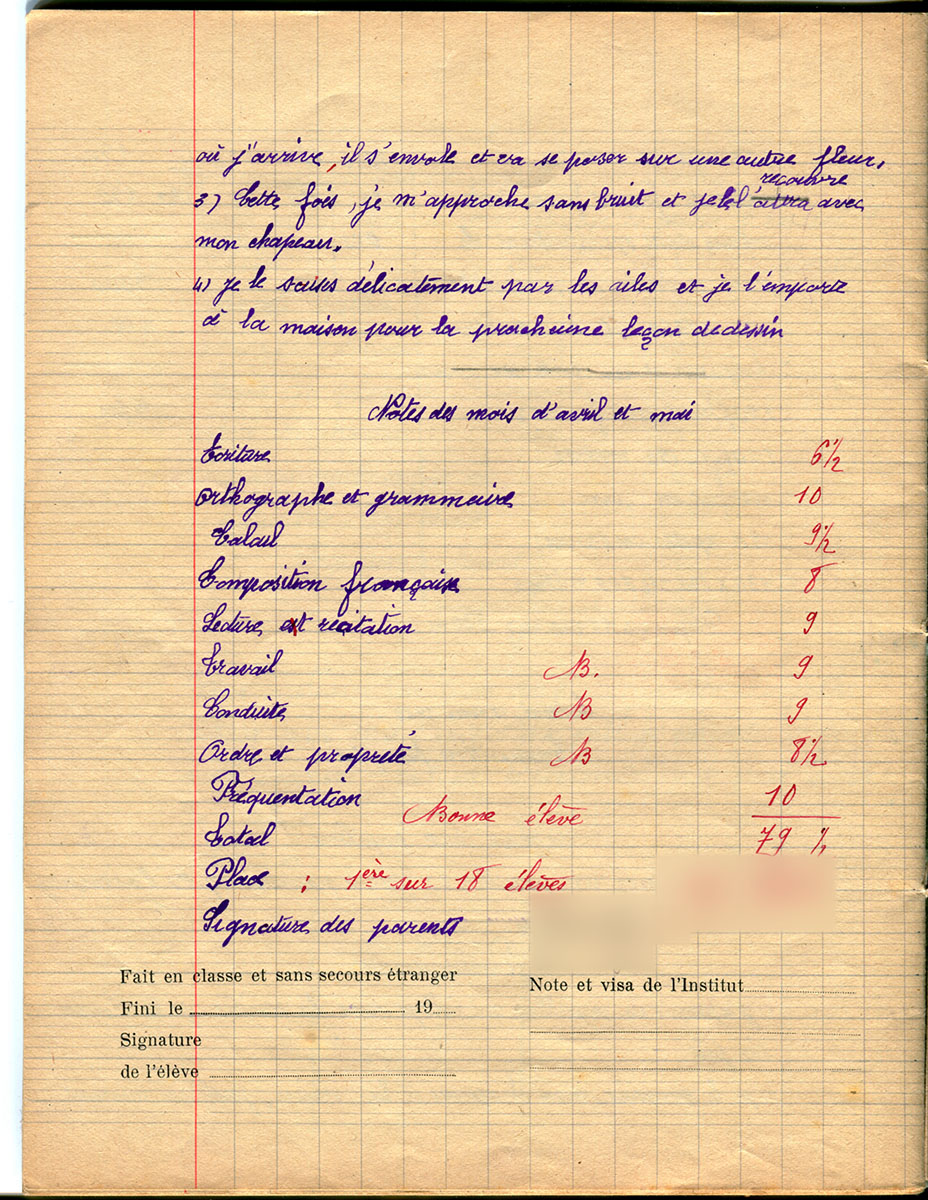 où j'arrive, il s'envole et va se poser sur une autre fleur.
recouvre
3) Cette fois, je m'approche sans bruit et je le l'attra avec
mon chapeau.
4) Je le saisis délicatement par les ailes et je l'emporte
à la maison pour la prochaine leçon de dessin
Notes des mois d'avril et mai
Ecriture 6 1/2
Orthographe et grammaire 10
Calcul 9 1/2
Composition française 8
Lecture et récitation 9
Travail B. 9
Conduite B 9
Ordre et propreté B 8 1/2
Fréquentation 10
Bonne élève
Total 79 1/2
Place : 1ère sur 18 élèves
Signature des parents
Fait en classe et sans secours étranger
Note et visa de l'Institut
Fini le 19
Signature
de l'élève